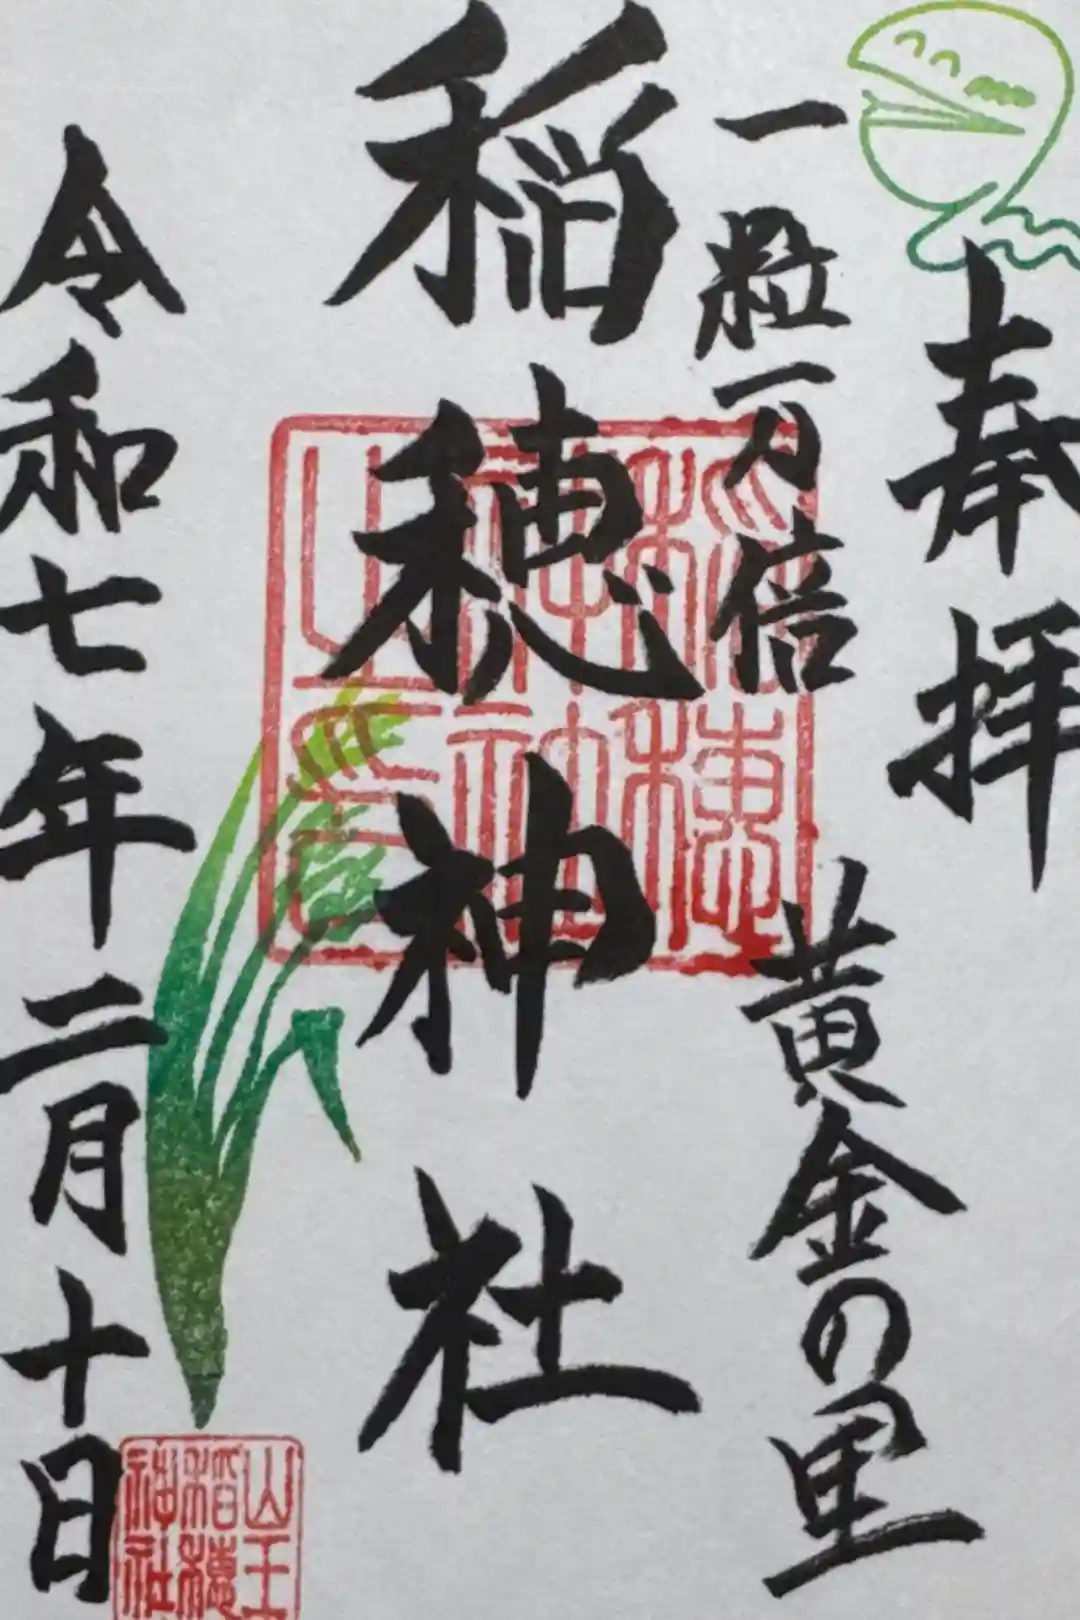 奉拝
一粒万倍
黄金の里
稲穂神社
令和七年二月十日
稲穂神社之印
山王
稲穂
神社